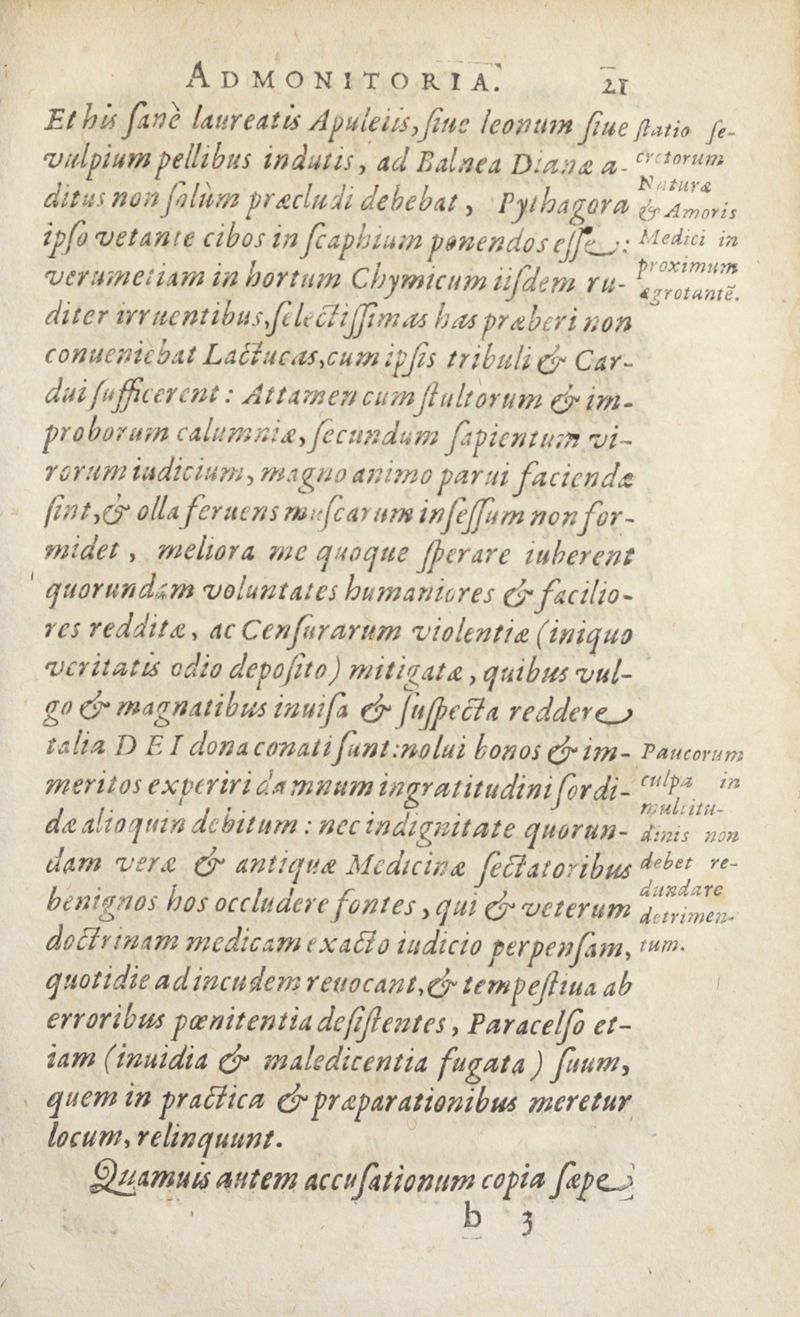 ADMONITORIA. 21
Et his ſanè laureatis Apuleiis, ſiue leonum ſiue
vulpium pellibus indutis, ad Balnea Dianæ a-
ditus non ſolùm præcludi debebat, Pythagora
ipſo vetante cibos in ſcaphium ponendos eſſe:
verumetiam in hortum Chymicum iiſdem ru-
diter irruentibus, ſelectiſſimas has præberi non
conueniebat Lactucas, cum ipſis tribuli & Car-
dui ſufficerent: Attamen cum ſtultorum & im-
proborum calumniæ, ſecundum ſapientum vi-
rorum iudicium, magno animo parui faciendæ
ſint, & olla feruens muſcarum inſeſſum non for-
midet, meliora me quoque ſperare iuberent
quorundam voluntates humaniores & facilio-
res redditæ, ac Cenſurarum violentiæ (iniquo
veritatis odio depoſito) mitigatæ, quibus vul-
go & magnatibus inuiſa & ſuſpecta reddere
talia DEI dona conati ſunt: nolui bonos & im-
meritos experiri damnum ingratitudini ſordi-
dæ alioquin debitum: nec indignitate quorun-
dam veræ & antiquæ Medicinæ ſectatoribus
benignos hos occludere fontes, qui & veterum
doctrinam medicam exacto iudicio perpenſam,
quotidie ad incudem reuocant, & tempeſtiua ab
erroribus pœnitentia deſiſtentes, Paracelſo et-
iam (inuidia & maledicentia fugata) ſuum,
quem in practica & præparationibus meretur
locum, relinquunt.
Quamuis autem accuſationum copia ſæpe
b 3
ſtatio ſe-
cretorum
Naturæ
& Amoris
Medici in
proximum
ægrotantē.
Paucorum
culpa in
multitu-
dinis non
debet re-
dundare
detrimen-
tum.